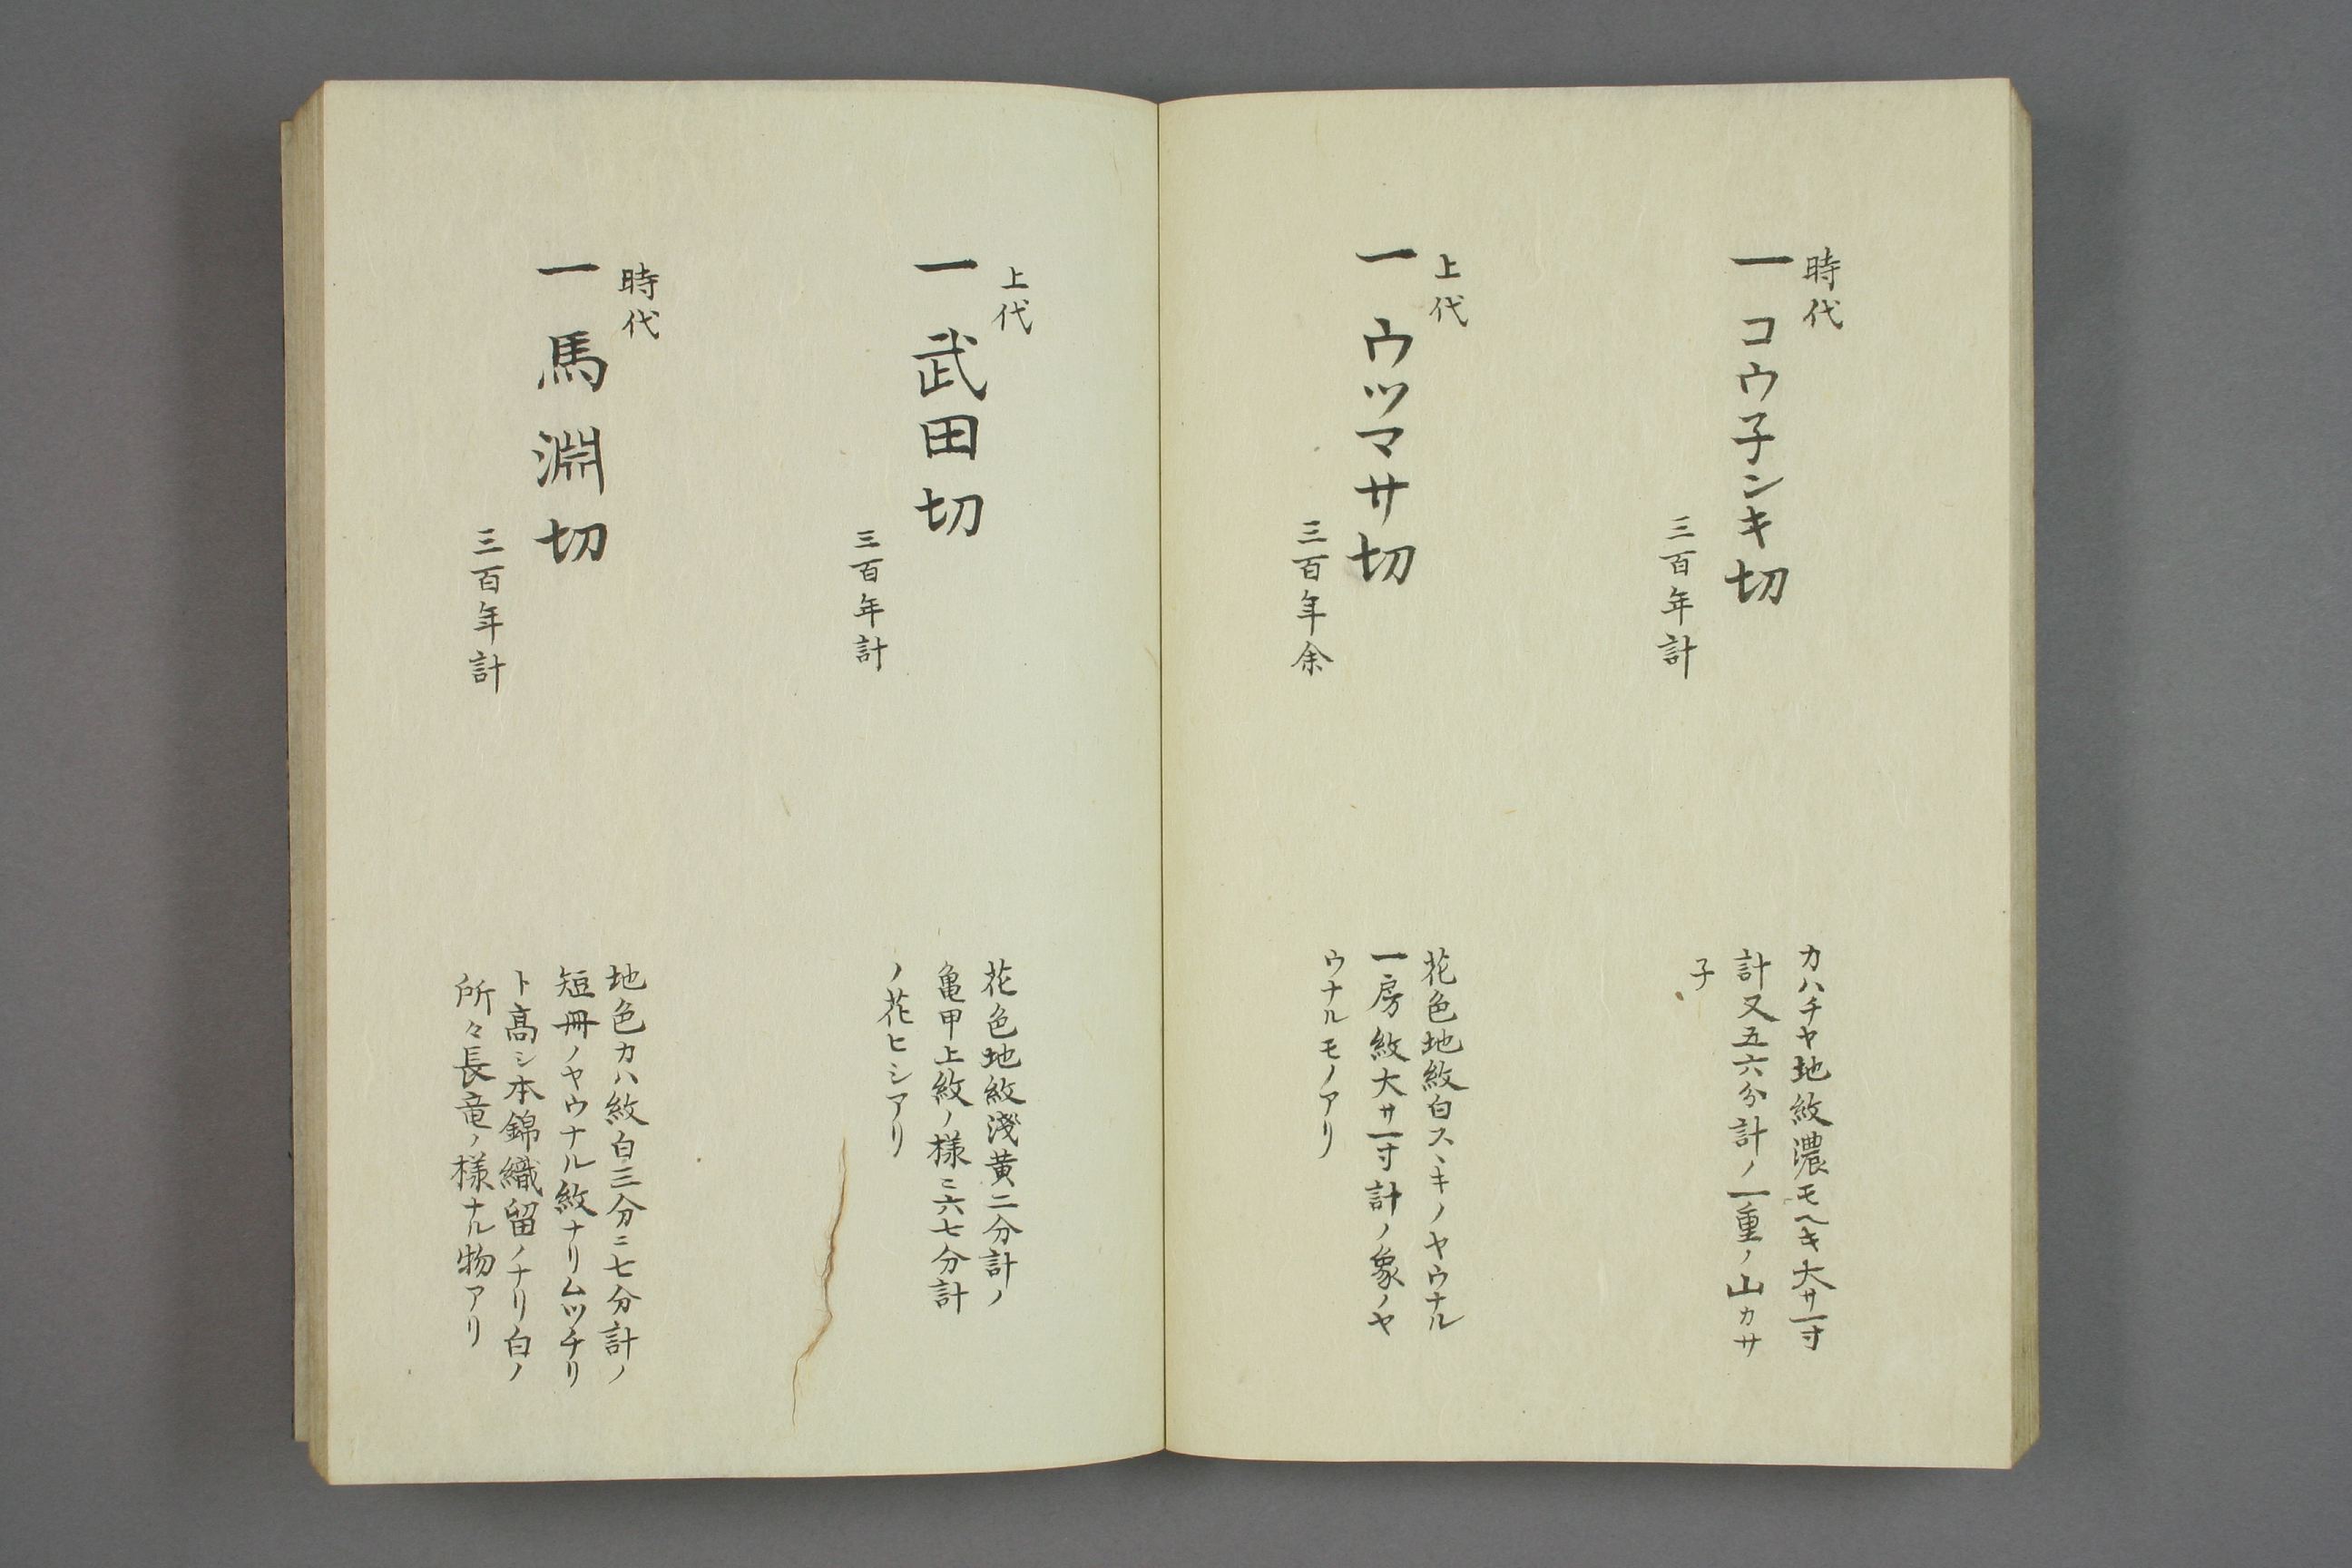 時代
一コウ子ンキ切
三百年計
カハチヤ地紋濃モヘキ大サ一寸
計又五六分計ノ一重ノ山カサ
子
上代
一ウツマサ切
三百年余
花色地紋白スヽキノヤウナル
一房紋大サ一寸計ノ象ノヤ
ウナルモノアリ
上代
一武田切
三百年計
花色地紋淺黄二分計ノ
亀甲上紋ノ様ニ六七分計
ノ花ヒシアリ
時代
一馬淵切
三百年計
地色カハ紋白三分ニ七分計ノ
短冊ノヤウナル紋ナリムツチリ
ト髙シ本錦織留ノナリ白ノ
所々長竜ノ様ナル物アリ